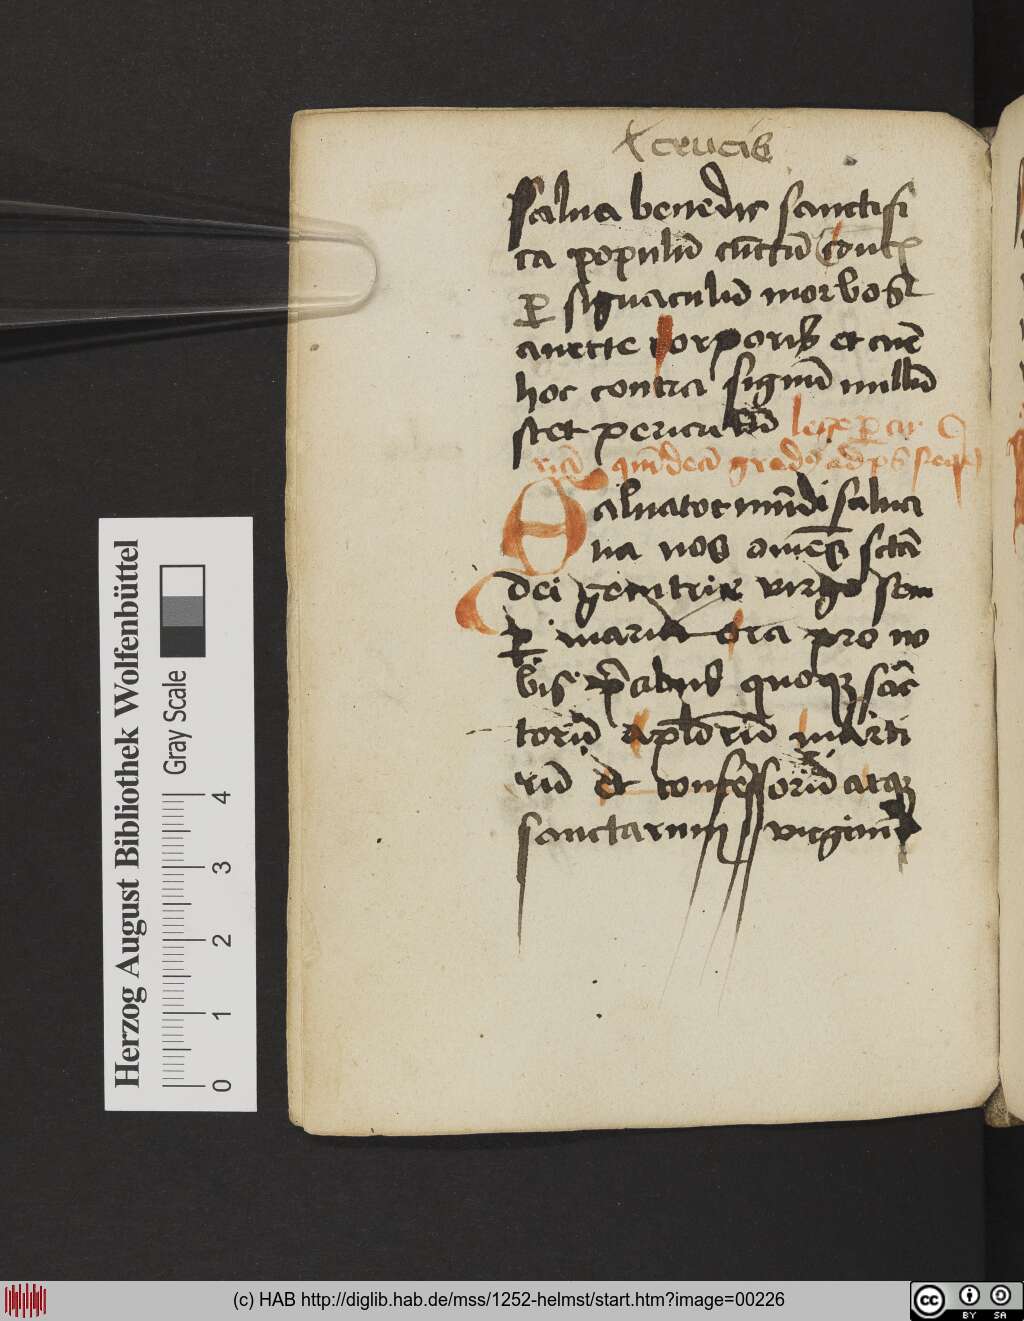 crucis
salua benedic sanctifi
ca populū cūctū
ꝑ signaculū morbos
auerte corporis et
hoc contra signū nullū
stet periculū
Saluator mūdi salua
nos omēs sctā
dei genitrix virgo sem
ꝑ maria ora pro no
bis p̄cibus quoqꝫ sāc
torū apl̄orū marti
rū et confessorū atqꝫ
sanctarum virginū
Herzog August Bibliothek Wolfenbüttel
Gray Scale
0 1 2 3 4
(c) HAB http://diglib.hab.de/mss/1252-helmst/start.htm?image=00226
cc BY SA